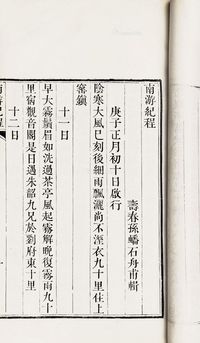 南游紀程
壽春孫蟠石舟甫輯
庚子正月初十日啟行
陰寒大風巳刻後細雨飄灑尚不溼衣九十里住上
窑鎮
十一日
早大霧鬚眉如洗過茶亭風起霧解晚復霧雨九十
里宿觀音閣是日遇朱韶九兄於劉府東十里
十二日